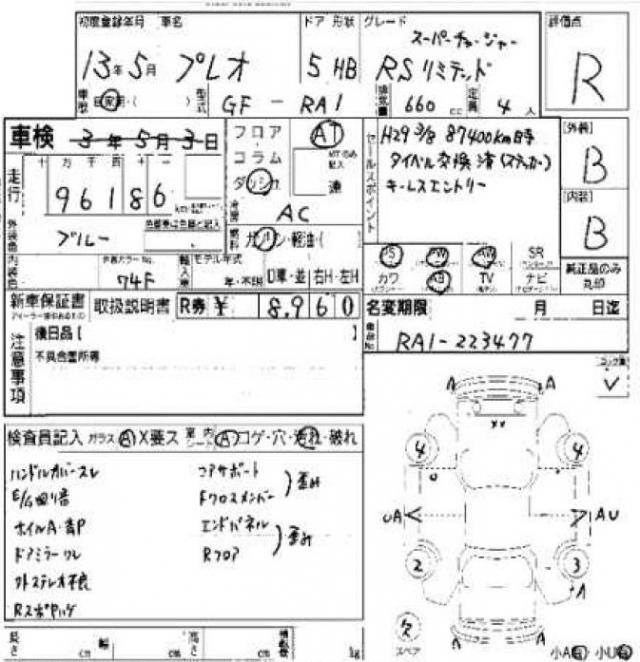 初度登録年月 車名 ドア 形状 グレード 評価点
スーパーチャージャー
13年 5月 プレオ 5 HB RSリミテッド R
車歴 自家用・( ) 型式 GF-RA1 排気量 660 cc 定員 4人
車検 3年5月3日
フロア AT
コラム MTのみ記入
ダッシュ 速
セールスポイント
H29 3/8 87400km時
タイベル交換済(ステッカー)
キーレスエントリー
[外装]
B
[内装]
B
走行 十 万 千 百 十 一
96186
冷房 AC
外装色 ブルー 色替車は色替と記入
燃料 ガソリン・軽油・( )
PS PW AW SR
カワ AB TV ナビ
純正品のみ丸印
内装色 カラーNo. 74F
輸入車 モデル年式 年・不明 D車・並 右H・左H
新車保証書 取扱説明書 R券 ¥ 8,960
名変期限 月 日迄
車台No RA1-223477
注意事項
備日品[ ]
不具合箇所等
コーション
A A
XX
4 4
UA AU
2 3
A
欠
スペア
小A 小U
検査員記入 ガラス A X要ス 室内シート A コゲ・穴・汚れ・破れ
ハンドルカバースレ コアサポート
E/G回り音 Fクロスメンバー 歪み
ホイルA・音P エンドパネル
ドアミラーワレ Rフロア 歪み
外ステレオ不良
RスポPハゲ
長さ cm 幅 cm 高さ cm 積載量 kg